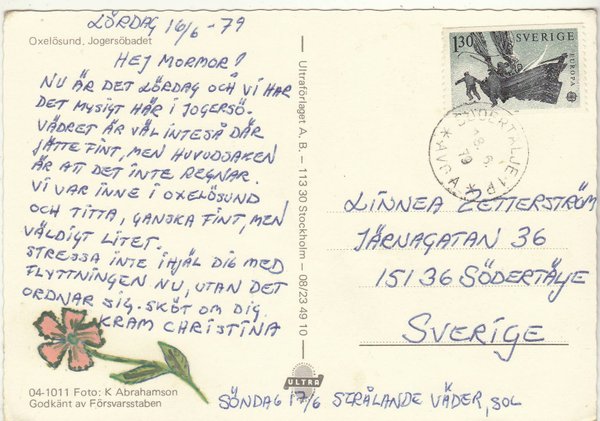 LÖRDAG 16/6 - 79
Oxelösund. Jogersöbadet
HEJ MORMOR!
NU ÄR DET LÖRDAG OCH VI HAR
DET MYSIGT HÄR I JOGERSÖ.
VÄDRET ÄR VÄL INTE SÅ DÄR
JÄTTE FINT, MEN HUVUDSAKEN
ÄR ATT DET INTE REGNAR.
VI VAR INNE I OXELÖSUND
OCH TITTA, GANSKA FINT, MEN
VÄLDIGT LITET.
STRESSA INTE IHJÄL DIG MED
FLYTTNINGEN NU, UTAN DET
ORDNAR SIG. SKÖT OM DIG
KRAM CHRISTINA
04-1011 Foto: K Abrahamson
Godkänt av Försvarsstaben
Ultraförlaget A. B. — 113 30 Stockholm — 08/23 49 10
ULTRA
1.30 SVERIGE
EUROPA
SÖDERTÄLJE 1
18 6
79
LINNEA ZETTERSTRÖM
JÄRNAGATAN 36
151 36 SÖDERTÄLJE
SVERIGE
SÖNDAG 17/6 STRÅLANDE VÄDER, SOL